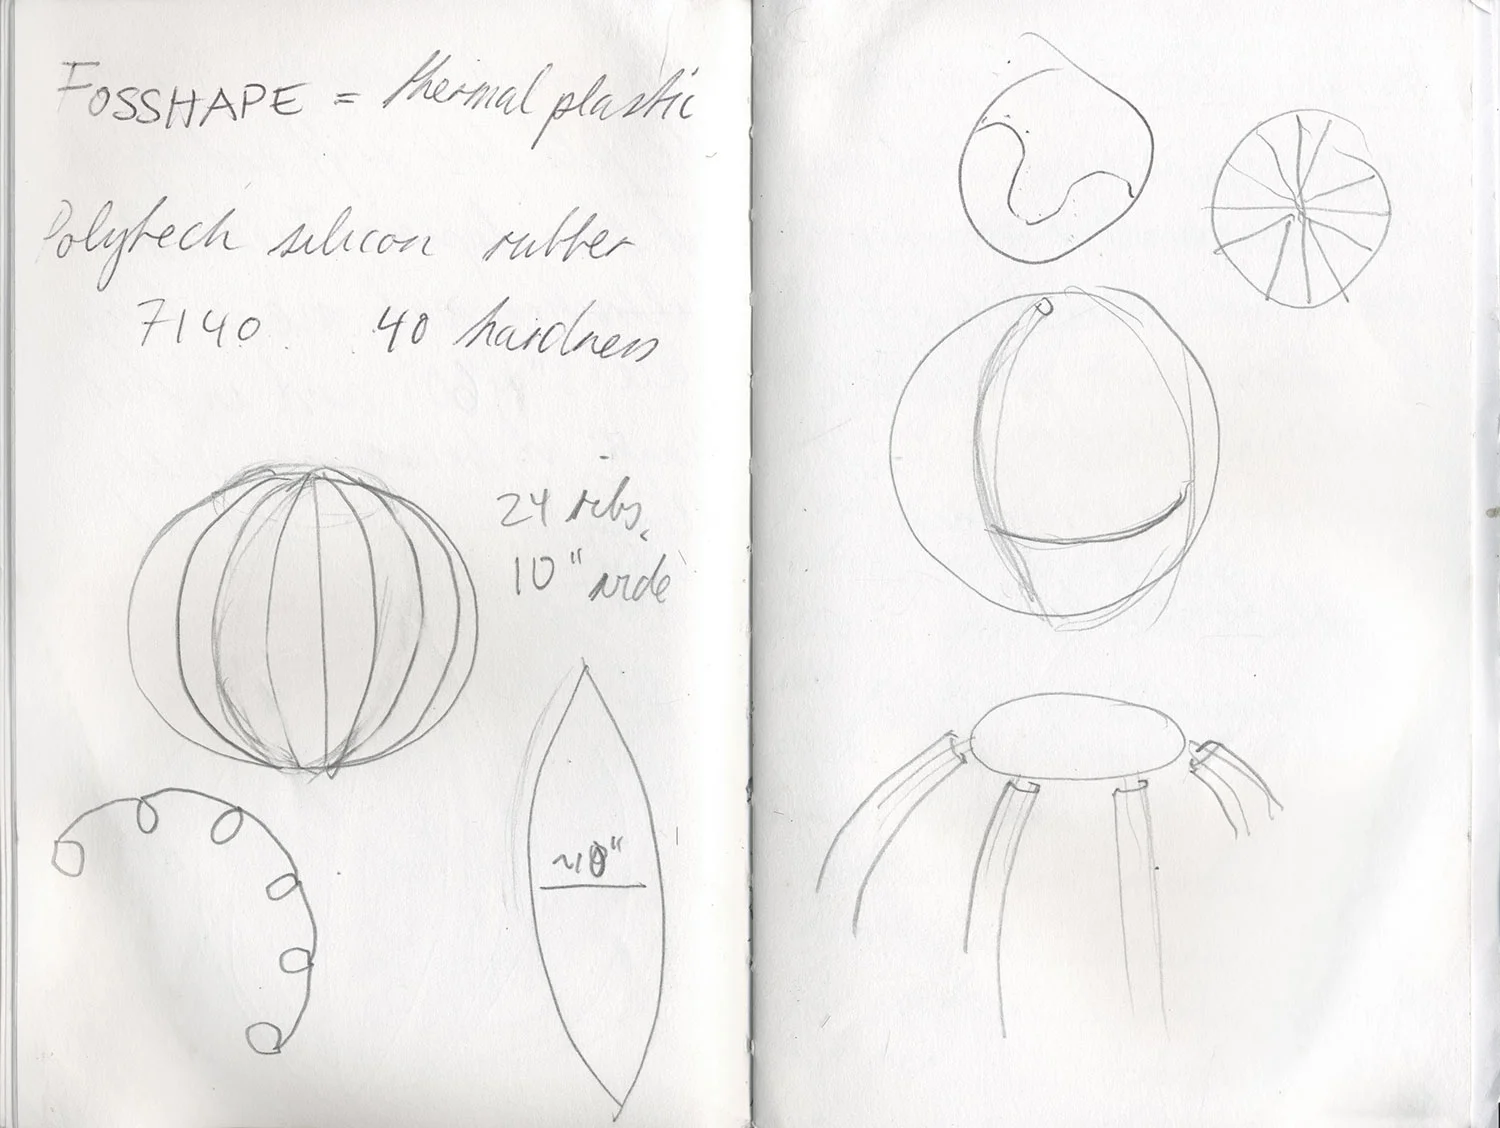 FOSSHAPE = thermal plastic
Polytech silicon rubber
7140 40 hardness
24 ribs,
10" wide
~10"